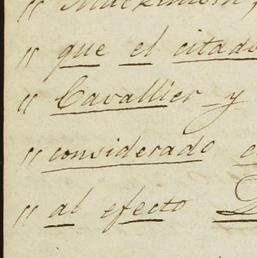 "
" que el citado
" Cavallier y
" considerado
" al efecto